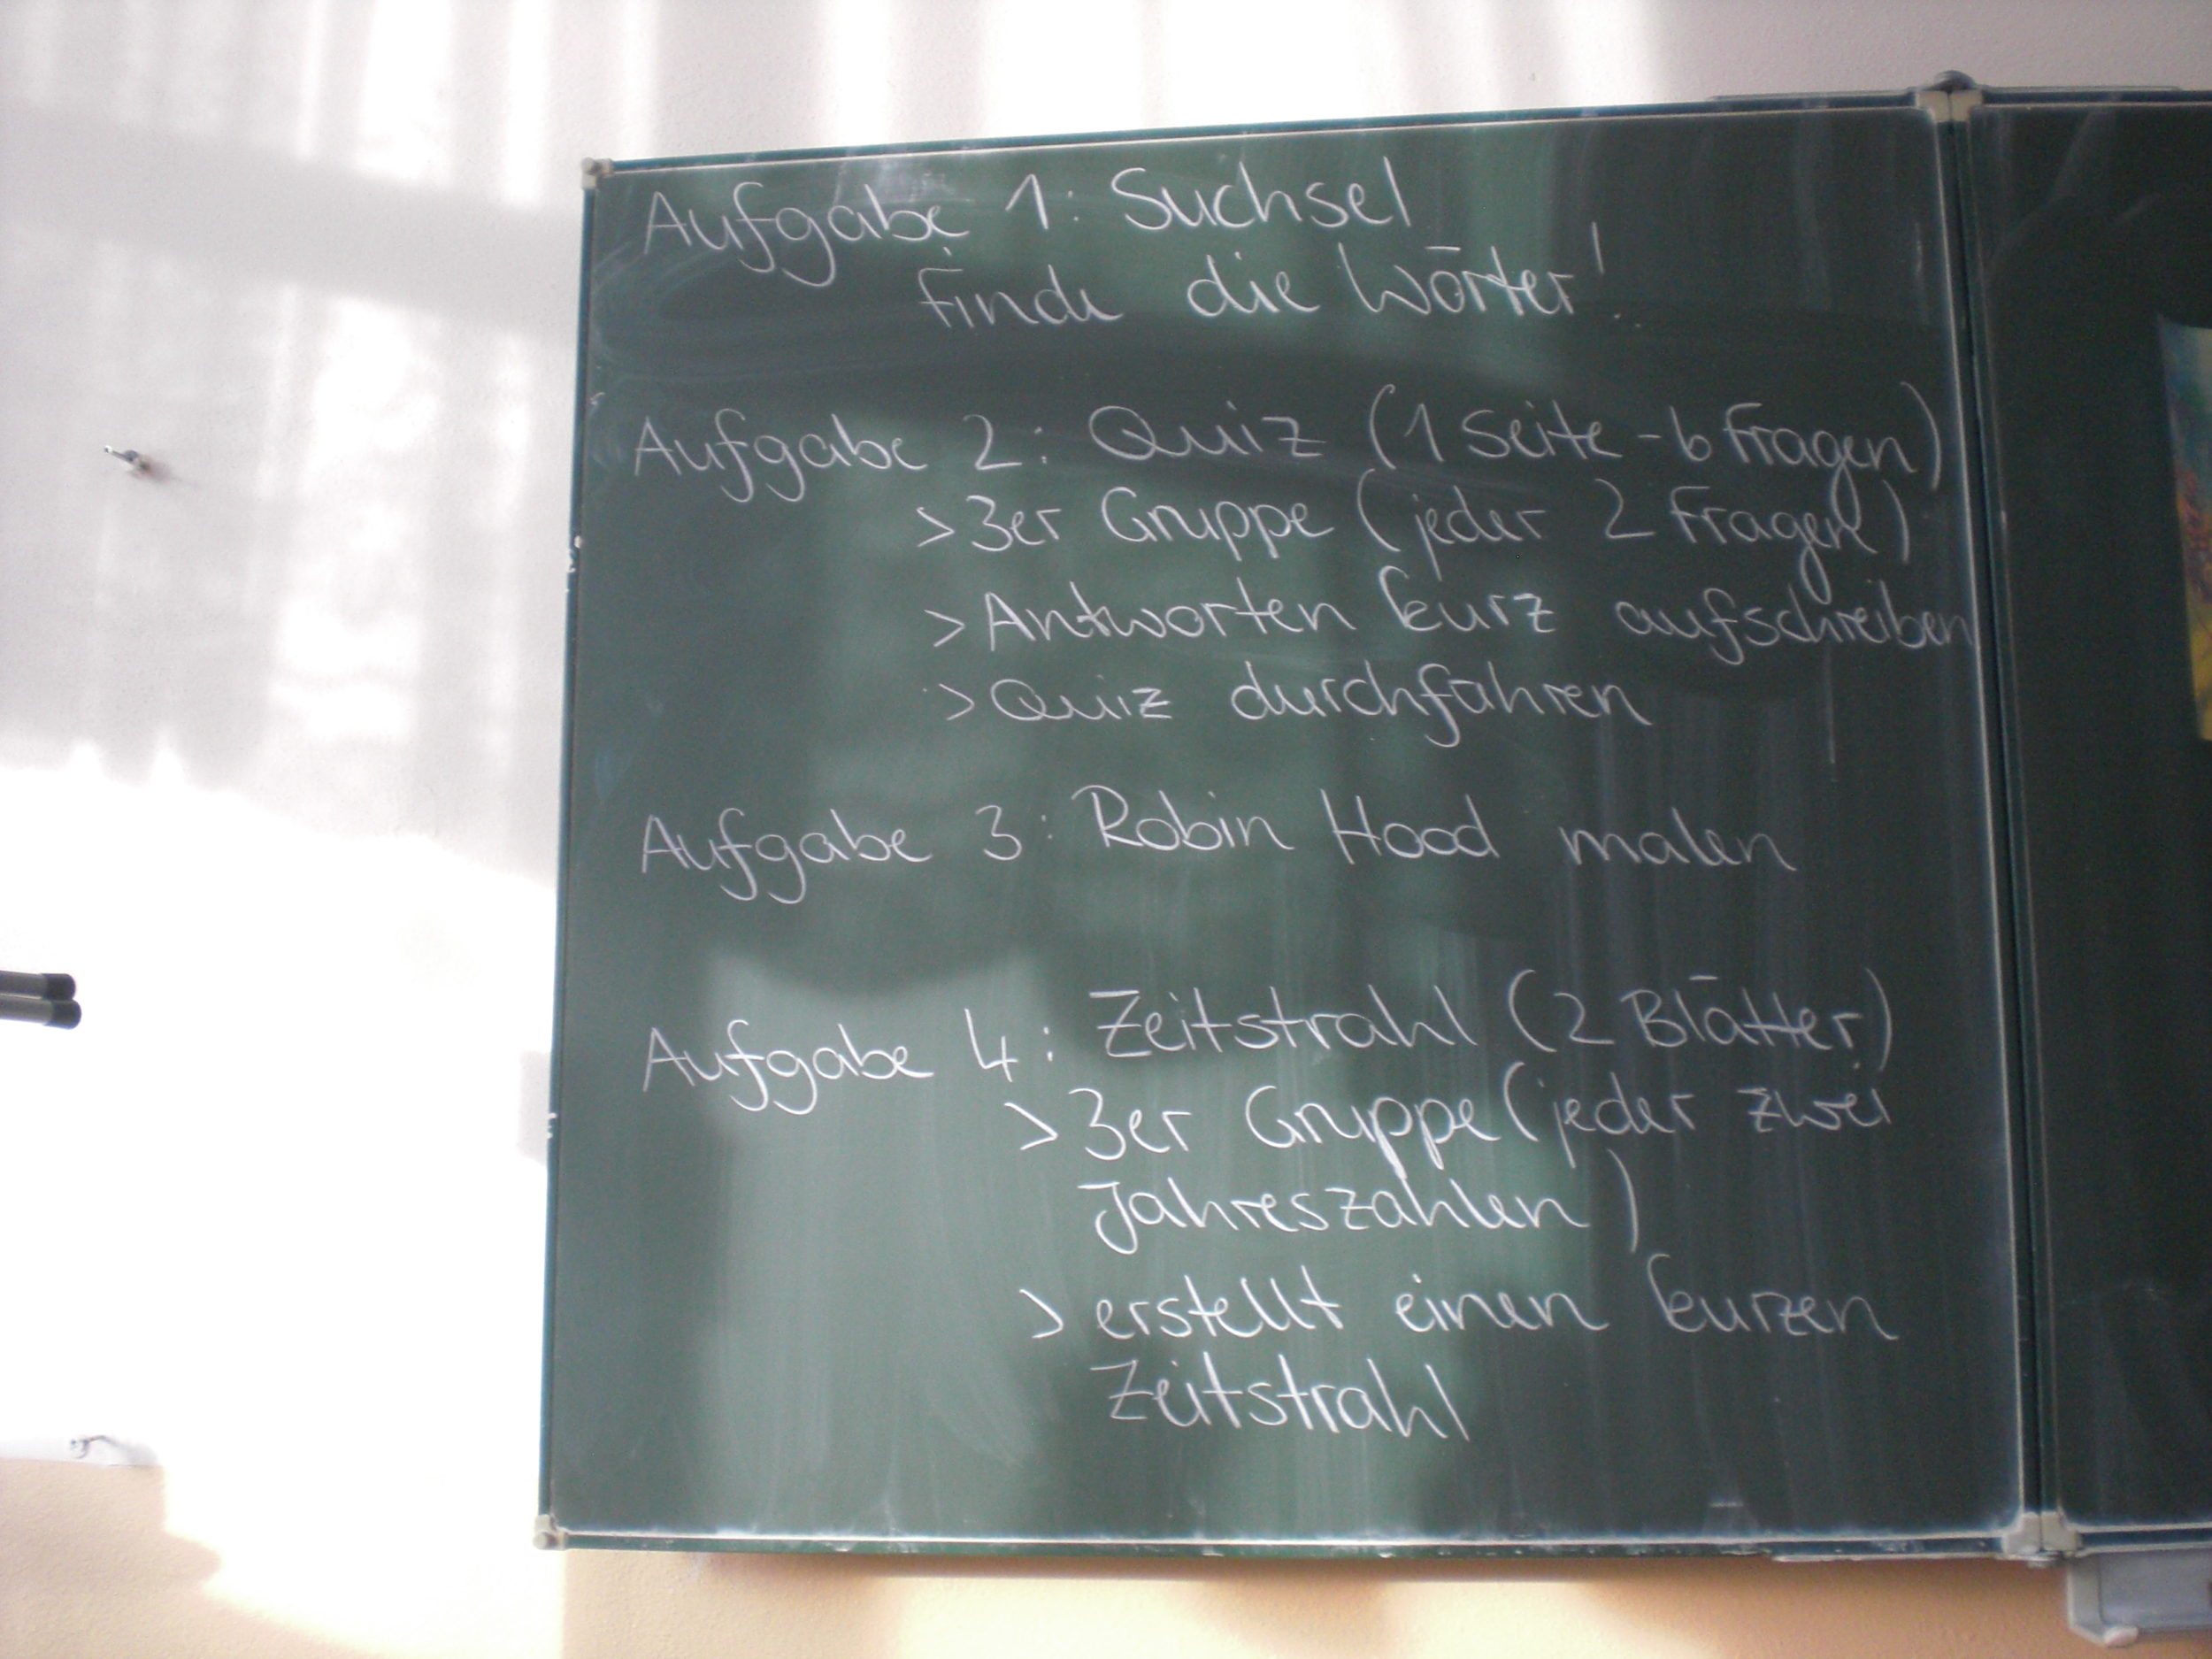 Aufgabe 1: Suchsel
Finde die Wörter!
Aufgabe 2: Quiz (1 Seite - 6 Fragen)
> 3er Gruppe (jeder 2 Fragen)
> Antworten kurz aufschreiben
> Quiz durchführen
Aufgabe 3: Robin Hood malen
Aufgabe 4: Zeitstrahl (2 Blätter)
> 3er Gruppe (jeder zwei
Jahreszahlen)
> erstellt einen kurzen
Zeitstrahl